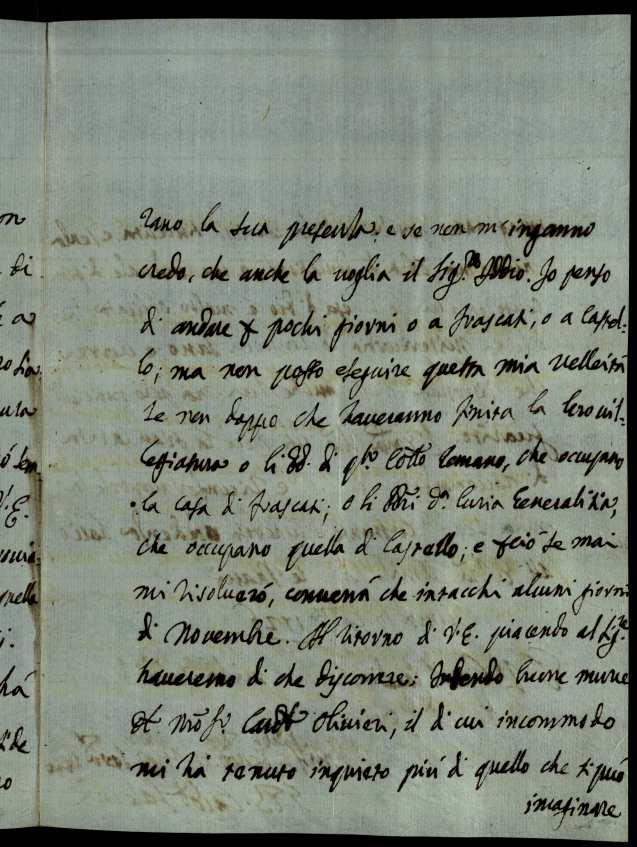 rano la sua presenza, e se non m'inganno
credo, che anche la voglia il Sig.re Iddio. Io penso
di andare pochi giorni o a Frascati, o a Castel-
lo; ma non posso eseguire questa mia velleità
se non doppo che haveranno finita la loro vil-
leggiatura o li di q.to Coll.o Romano, che occupano
la casa di Frascati; o li della Curia Generalitia,
che occupano quella di Castello; e se mai
mi risolverò, converrà che intacchi alcuni giorni
di Novembre. Al ritorno di V.E. piacendo al Sig.re
haveremo di che discorrere. Intendo buone nuove
del Card. Olivieri, il di cui incommodo
mi há tenuto inquieto piú di quello che si può
imaginare
on
di
a
ura
V.E.
quella
há